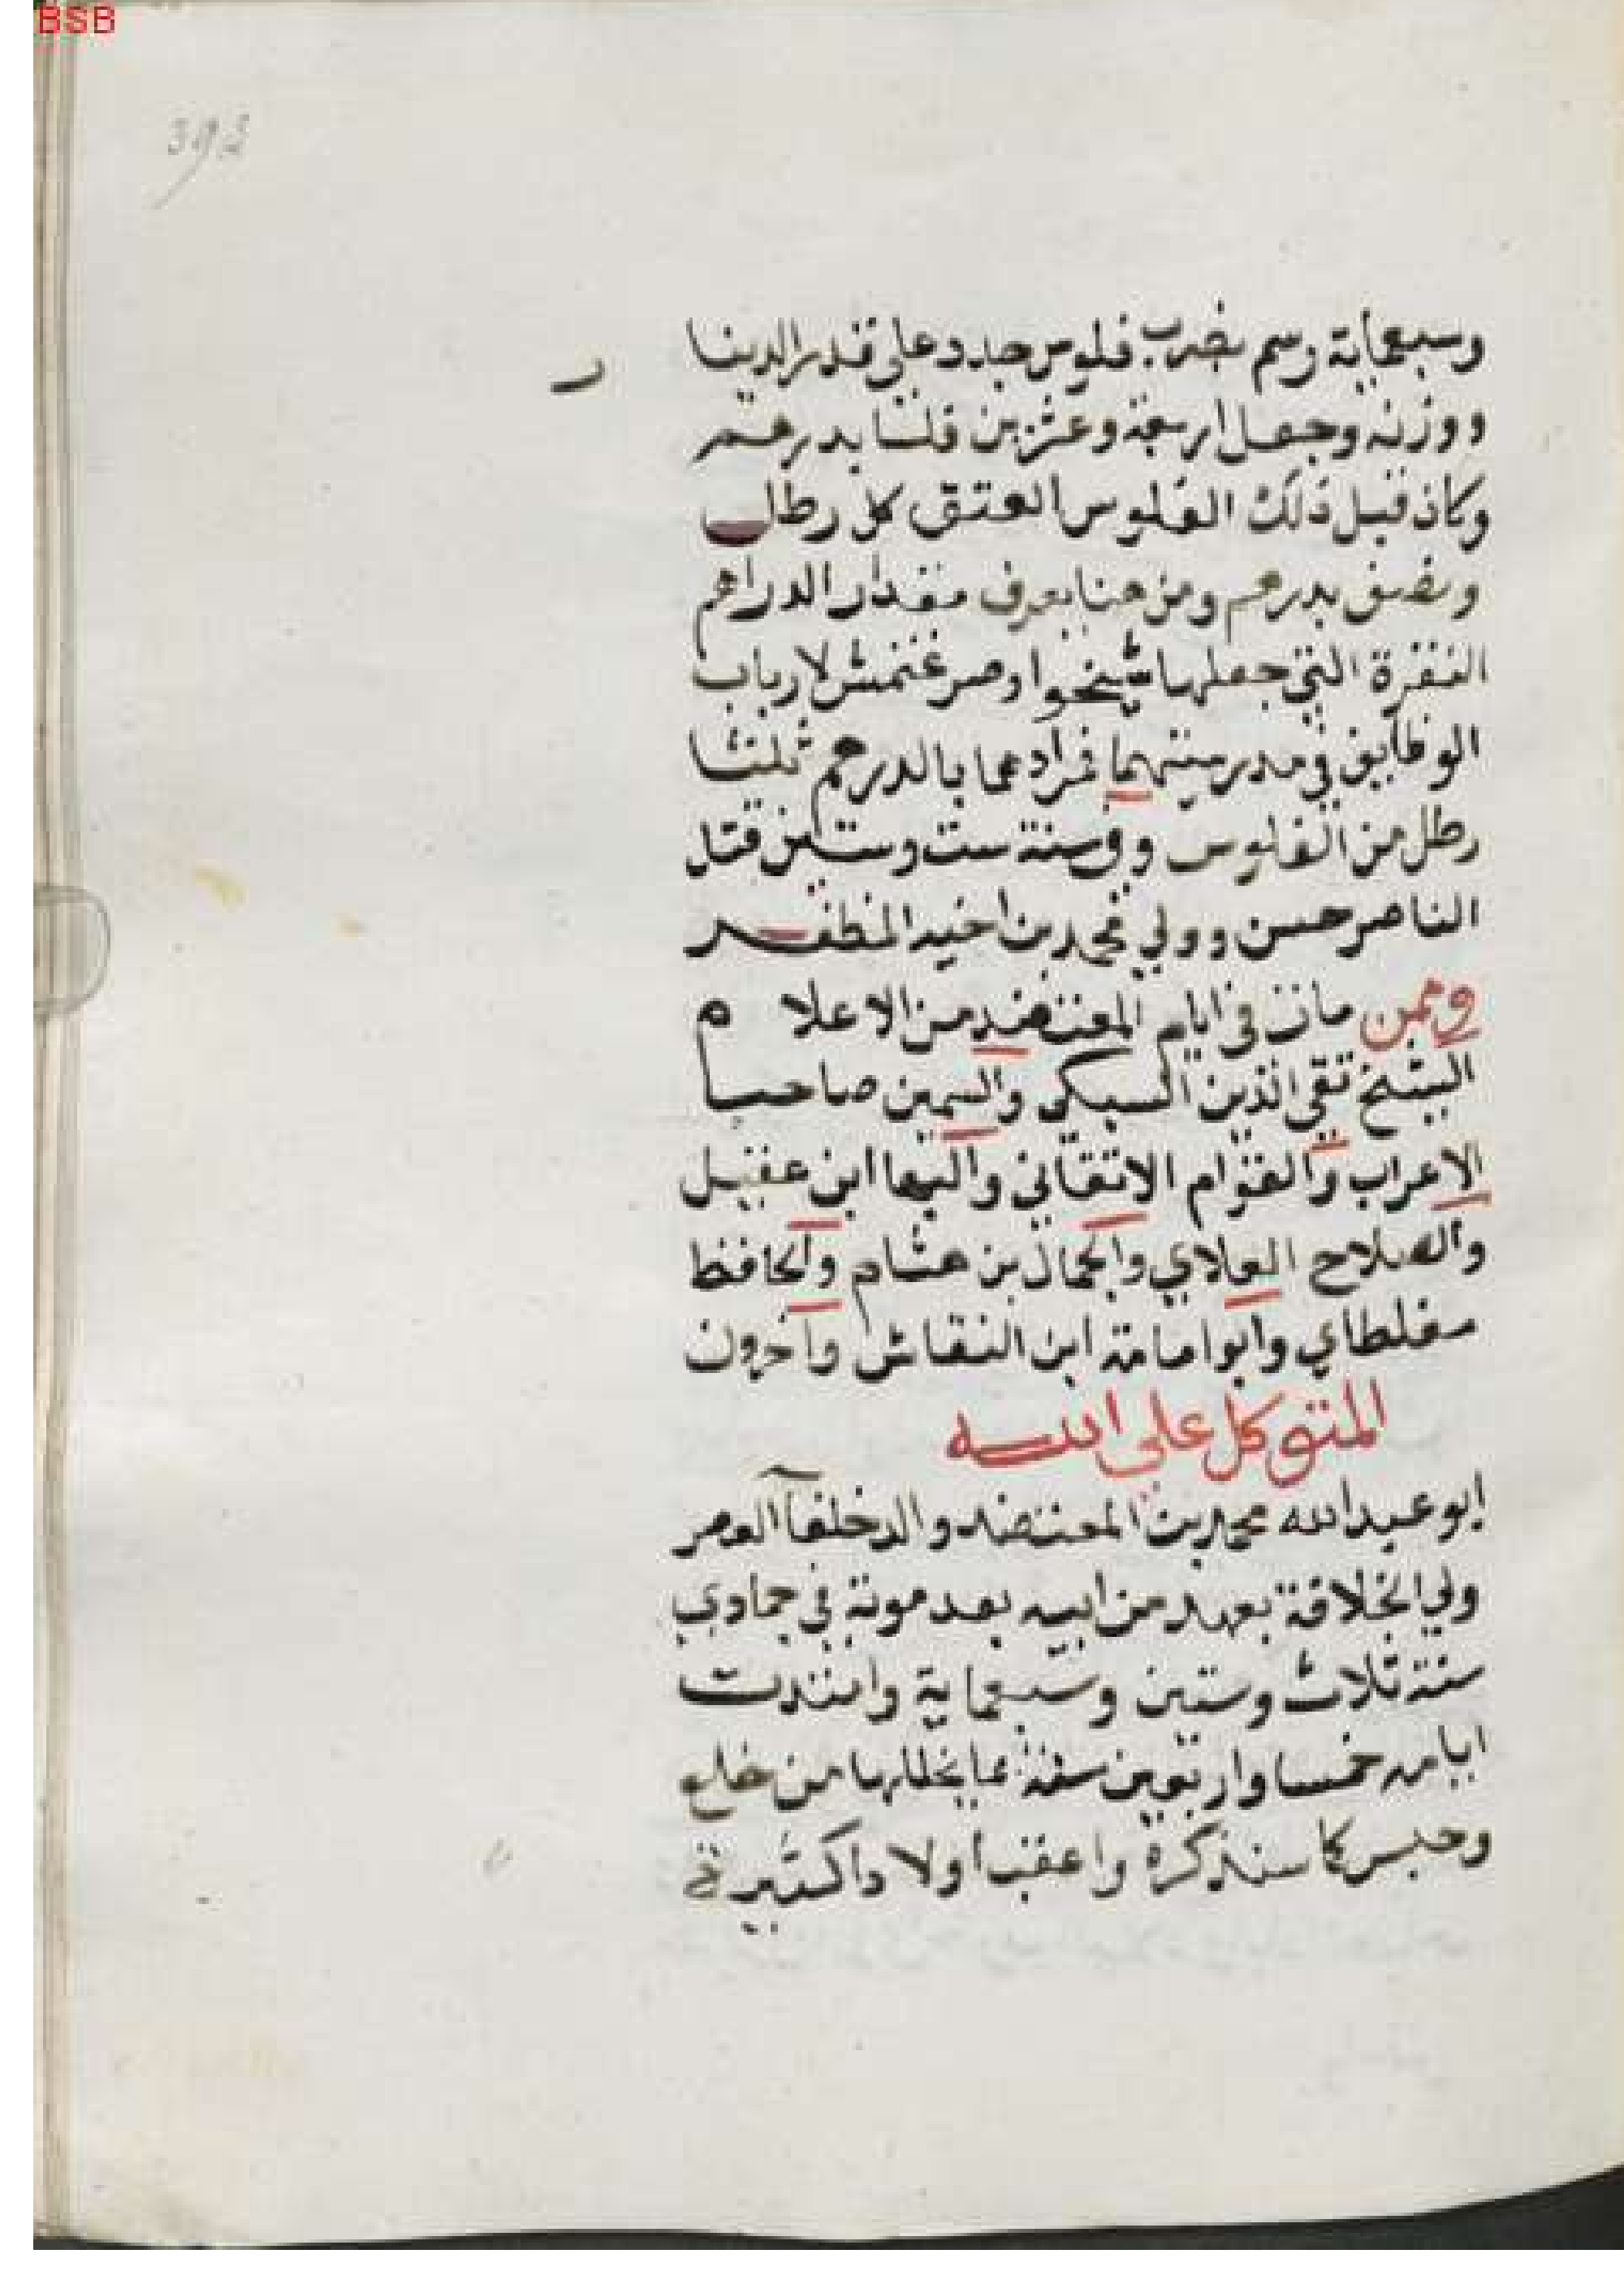 BSB
393
وسبعماية رسم بضرب فلوس جدد على قدر الدينا
ر
ووزنه وجعل اربعة وعشرين فلسا بدرهم
وكان قبل ذلك الفلوس العتق كل رطل
ونصف بدرهم ومن هنا يعرف مقدار الدراهم
النقرة التي جعلها شيخوا وصرغتمش لارباب
الوظايف في مدرستيهما فمرادهما بالدرهم ثلثا
رطل من الفلوس وفي سنة ست وستين قتل
الناصر حسن وولي محمد بن اخيه المظفر
وممن مات في ايام المعتضد من الاعلام
الشيخ تقي الدين السبكي والسمين صاحب
الاعراب والقوام الاتقاني والبها ابن عقيل
والصلاح العلاي والجمال بن هشام والحافظ
مغلطاي وابوا مامة ابن النقاش واخرون
المتوكل على الله
ابو عبد الله محمد بن المعتضد والد خلفآ العصر
ولي الخلافة بعهد من ابيه بعد موته في جمادي
سنة ثلاث وستين وسبعماية وامتدت
ايامه خمسا واربعين سنة بما يخللها من خلع
وحبس كما سنذكره واعقب اولادا كثيرة